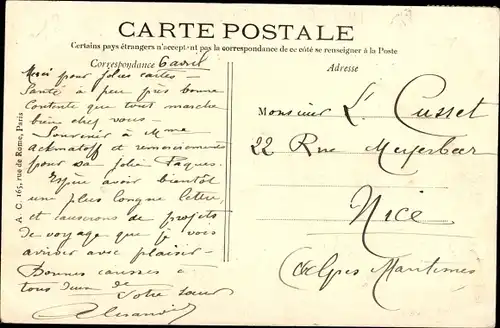 CARTE POSTALE
Certains pays étrangers n'acceptent pas la correspondance de ce côté se renseigner à la Poste
Correspondance 6 avril
Adresse
Merci pour jolies cartes –
Santé à peu près bonne
Contente que tout marche
bien chez vous –
Souvenir à Mme
et remerciements
pour sa jolie Pâques.
Espère avoir bientôt
une plus longue lettre,
et causerons de projets
de voyage que je vois
arriver avec plaisir –
Bonnes causses à
tous deux de
Votre sœur
Monsieur L. Cusset
22 Rue Meyerbeer
Nice
(Alpes Maritimes
A. C. 165, rue de Rome, Paris